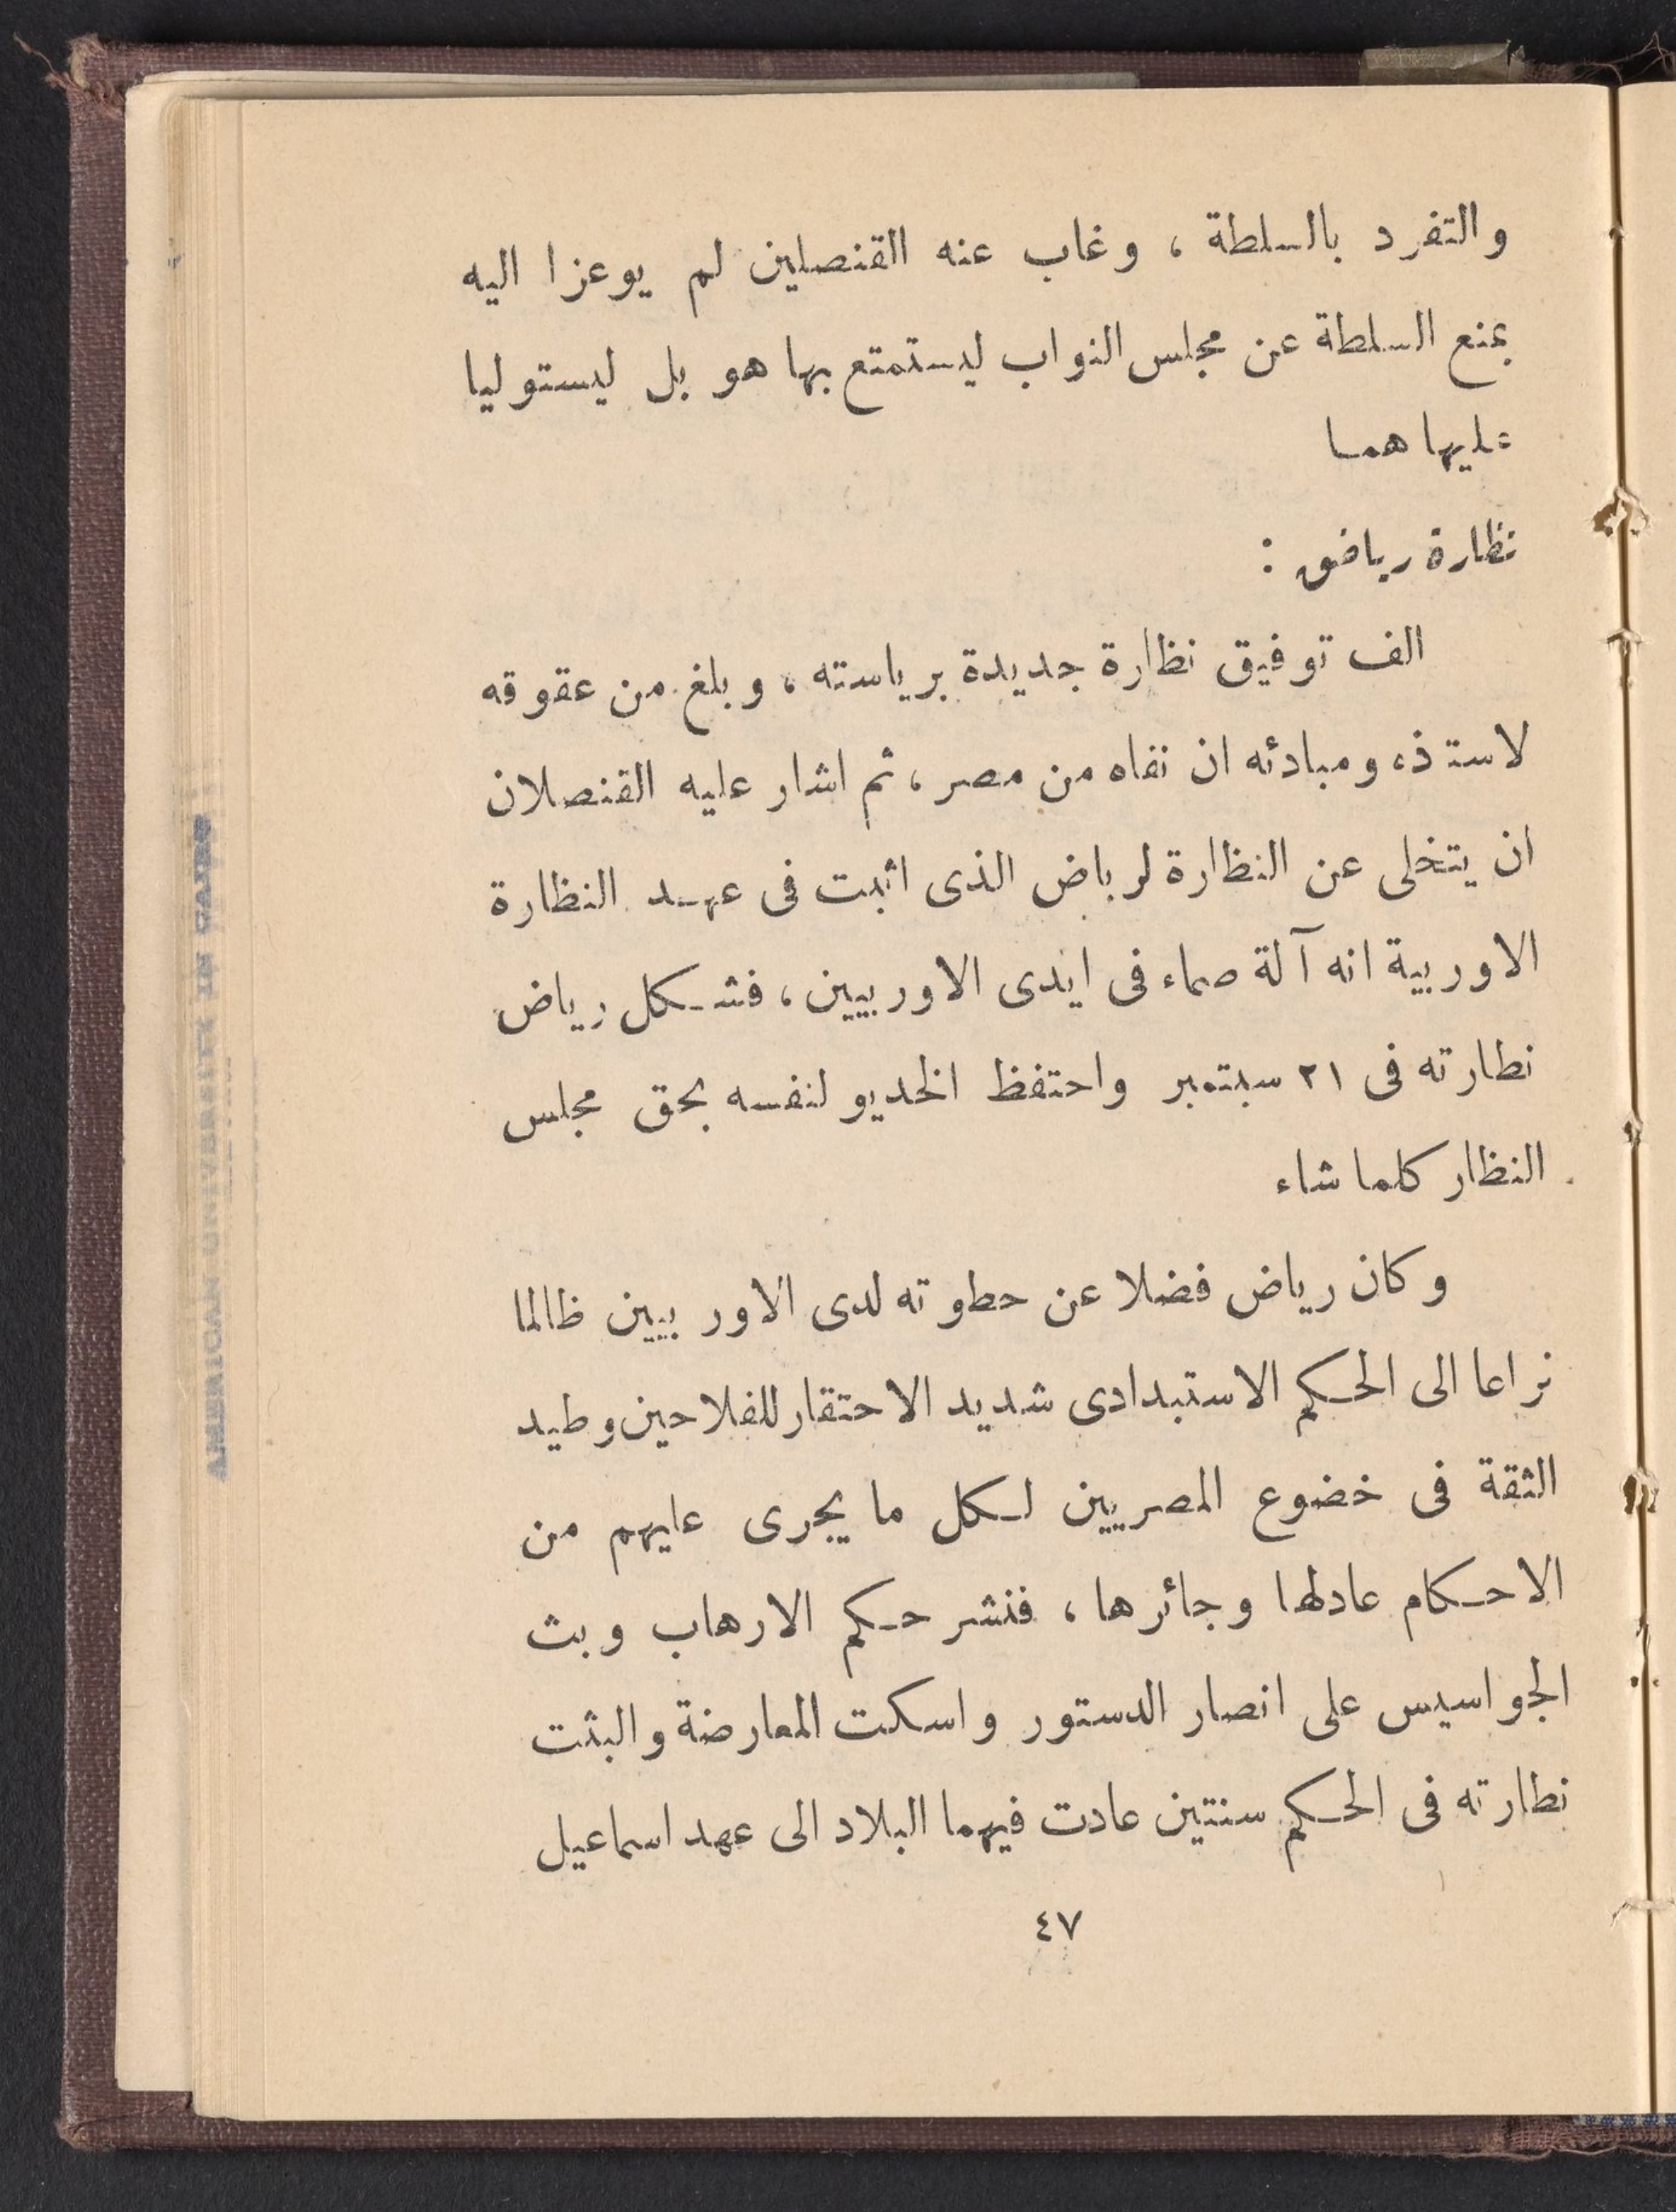 والتفرد بالسلطة ، وغاب عنه القنصلين لم يوعزا اليه
بمنع السلطة عن مجلس النواب ليستمتع بها هو بل ليستوليا
عليها هما
نظارة رياض :
الف توفيق نظارة جديدة برياسته ، وبلغ من عقوقه
لاستذه ومبادئه ان نفاه من مصر ، ثم اشار عليه القنصلان
ان يتخلى عن النظارة لرياض الذى اثبت فى عهد النظارة
الاوربية انه آلة صماء فى ايدى الاوربيين ، فشكل رياض
نطارته فى ٢١ سبتمبر واحتفظ الخديو لنفسه بحق مجلس
النظار كلما شاء
وكان رياض فضلا عن حطوته لدى الاوربيين ظالما
نزاعا الى الحكم الاستبدادى شديد الاحتقار للفلاحين وطيد
الثقة فى خضوع المصريين لكل ما يجرى عليهم من
الاحكام عادلها وجائرها ، فنشر حكم الارهاب وبث
الجواسيس على انصار الدستور واسكت المعارضة والبثت
نطارته فى الحكم سنتين عادت فيهما البلاد الى عهد اسماعيل
٤٧
AMERICAN UNIVERSITY IN CAIRO